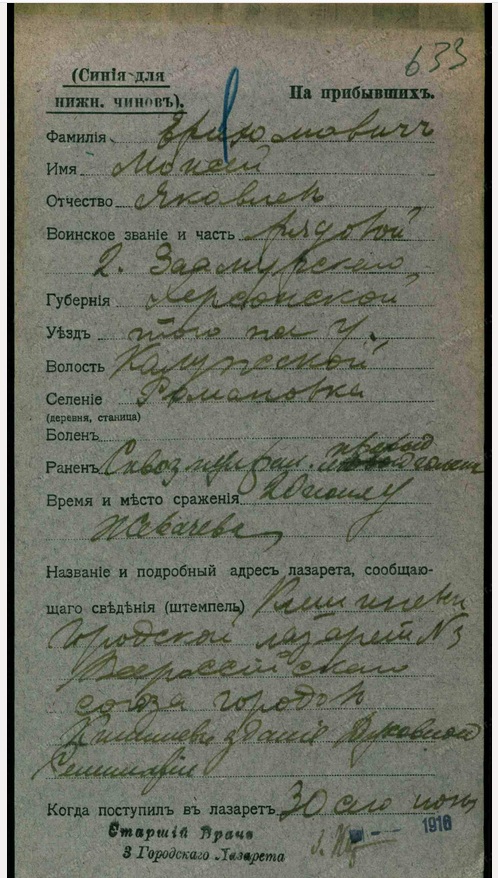 633
(Синія для
нижн. чиновъ).
На прибывшихъ.
Фамилія
Имя Моисей
Отчество Яковлев
Воинское званіе и часть рядовой
2. Заамурскаго
Губернія Херсонской
Уѣздъ того же у.
Волость Калужской
Селеніе Романовка
(деревня, станица)
Боленъ
Раненъ Сквоз пул ран. правой голени
Время и мѣсто сраженія
Названіе и подробный адресъ лазарета, сообщаю-
щаго свѣдѣнія (штемпель)
Городской лазарет № 3
Всероссійскаго
союза городов
здание Духовной
Семинаріи
Когда поступил въ лазаретъ 30 сего
Старшій Врачъ
3 Городскаго Лазарета
1916